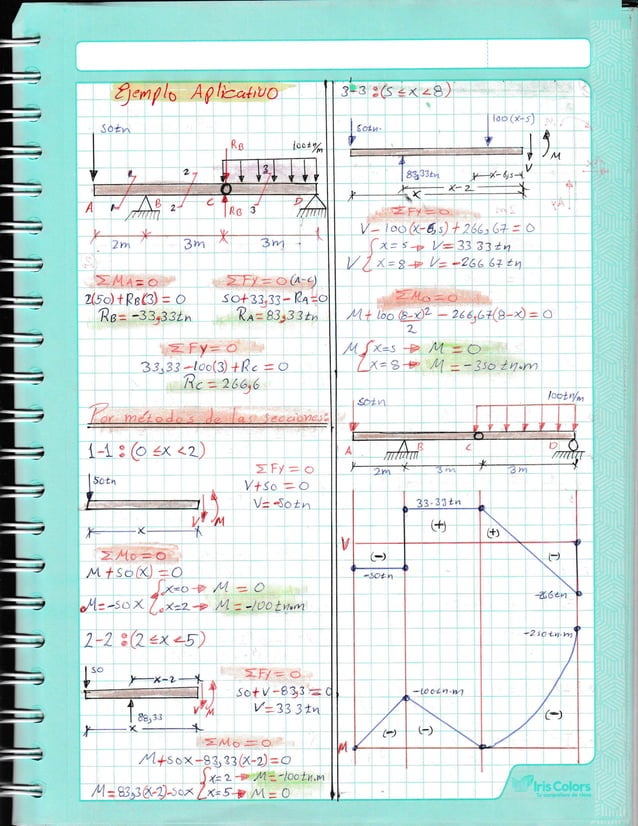 Ejemplo Aplicativo
50tn
RB
100tn/m
1
2
3
A
1
B
2
C
RB
3
D
2m
3m
3m
ΣMA=0
ΣFy=0 (A-C)
2(50)+RB(3) = 0
50+33,33-RA=0
RB= -33,33tn
RA= 83,33tn
ΣFy=0
33,33-100(3)+Rc = 0
Rc = 266,6
Por métodos de las secciones:
1-1 : (0 ≤ x < 2)
50tn
V
M
x
ΣFy = 0
V+50 = 0
V= -50tn
ΣMo=0
M+50(x) = 0
x=0 → M = 0
M=-50x
x=2 → M = -100tn.m
2-2 : (2 ≤ x < 5)
50
x-2
88,33
V
M
x
ΣFy=0
50+V-83,3=0
V=33 3tn
ΣMo=0
M+50x-83,33(x-2)=0
x=2 → M=-100tn.m
M=83,3(x-2)-50x
x=5 → M=0
3-3 : (5 ≤ x < 8)
50tn.
100(x-5)
M
V
83,33tn
x-2
x
ΣFy=0
V-100(x-6,5)+266,67=0
x=5 → V=33 33tn
V
x=8 → V= -266 67tn
ΣMo=0
M+100(8-x)² - 266,67(8-x)=0
2
M
x=5 → M=0
x=8 → M = -350tn.m
50tn
100tn/m
A
B
C
D
2m
3m
3m
33.33tn
(+)
(+)
V
(-)
(-)
-50tn
-266tn
-250tn.m
-100tn.m
(-)
(-)
(-)
M
Iris Colors